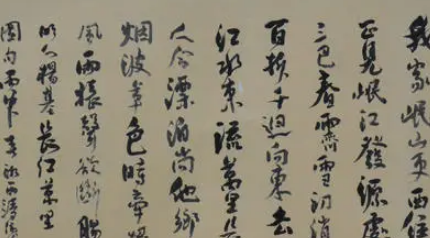 我家岷山更西住
正見岷江發源處
三巴春霽雪初消
百折千迴向東去
江水東流萬里長
人今漂泊尚他鄉
烟波草色時牽恨
風雨猿聲欲斷腸
明人楊基長江萬里
圖